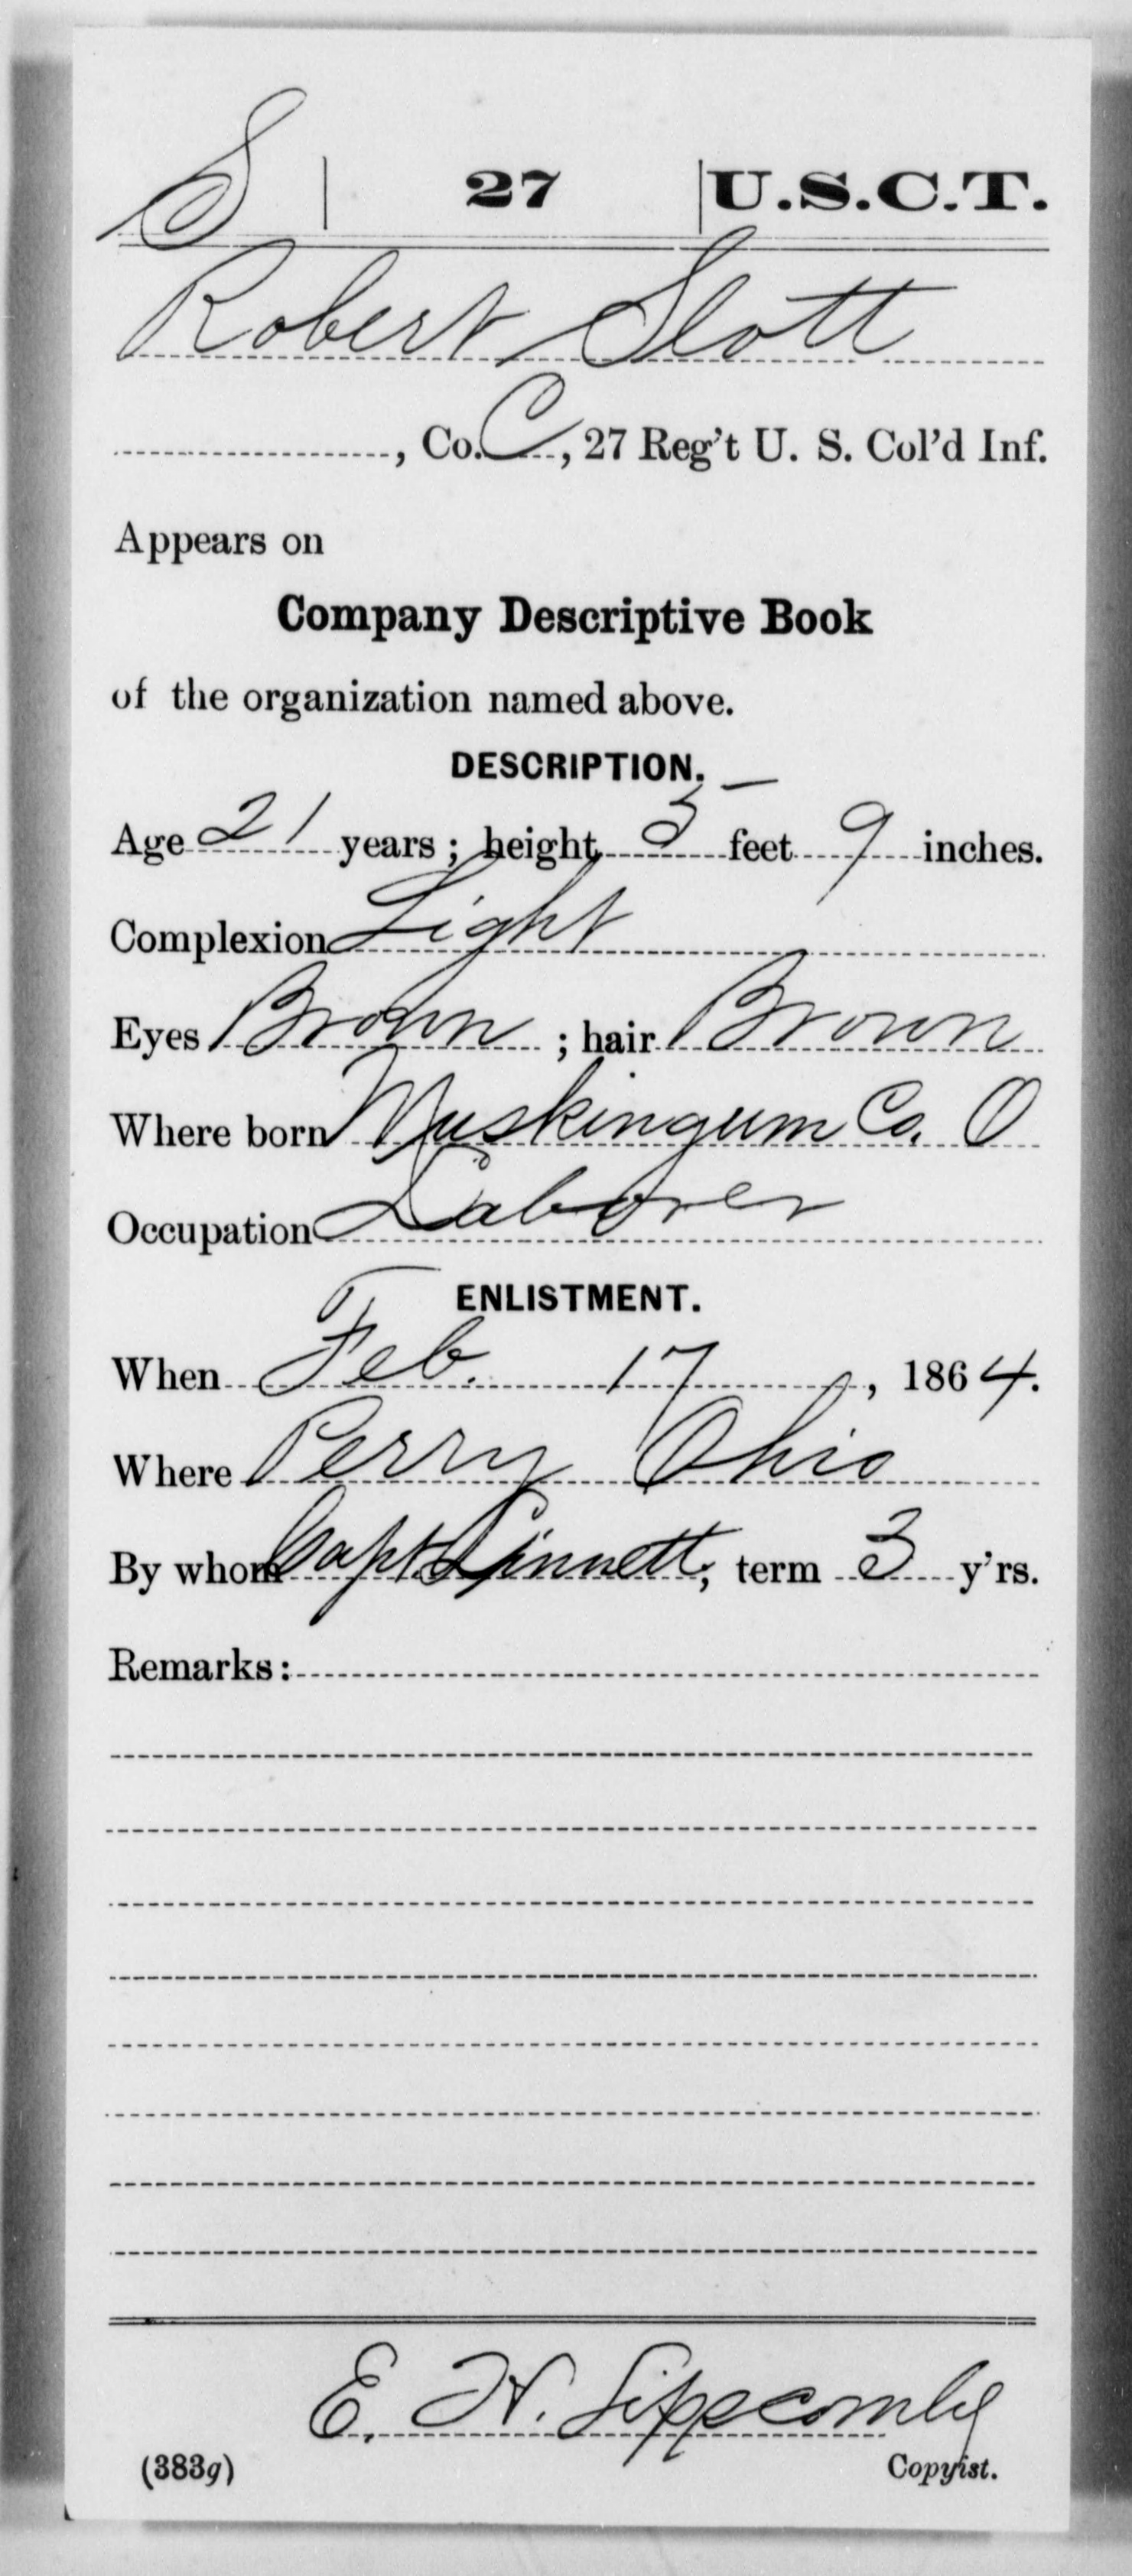 S | 27 | U.S.C.T.
Robert Slott
, Co. C, 27 Reg't U. S. Col'd Inf.
Appears on
Company Descriptive Book
of the organization named above.
DESCRIPTION.
Age 21 years; height 5 feet 9 inches.
Complexion Light
Eyes Brown; hair Brown
Where born Muskingum Co. O
Occupation Laborer
ENLISTMENT.
When Feb. 17, 1864.
Where Perry Ohio
By whom Capt Sinnett; term 3 y'rs.
Remarks:
E. H. Lipscomb
(383g) Copyist.